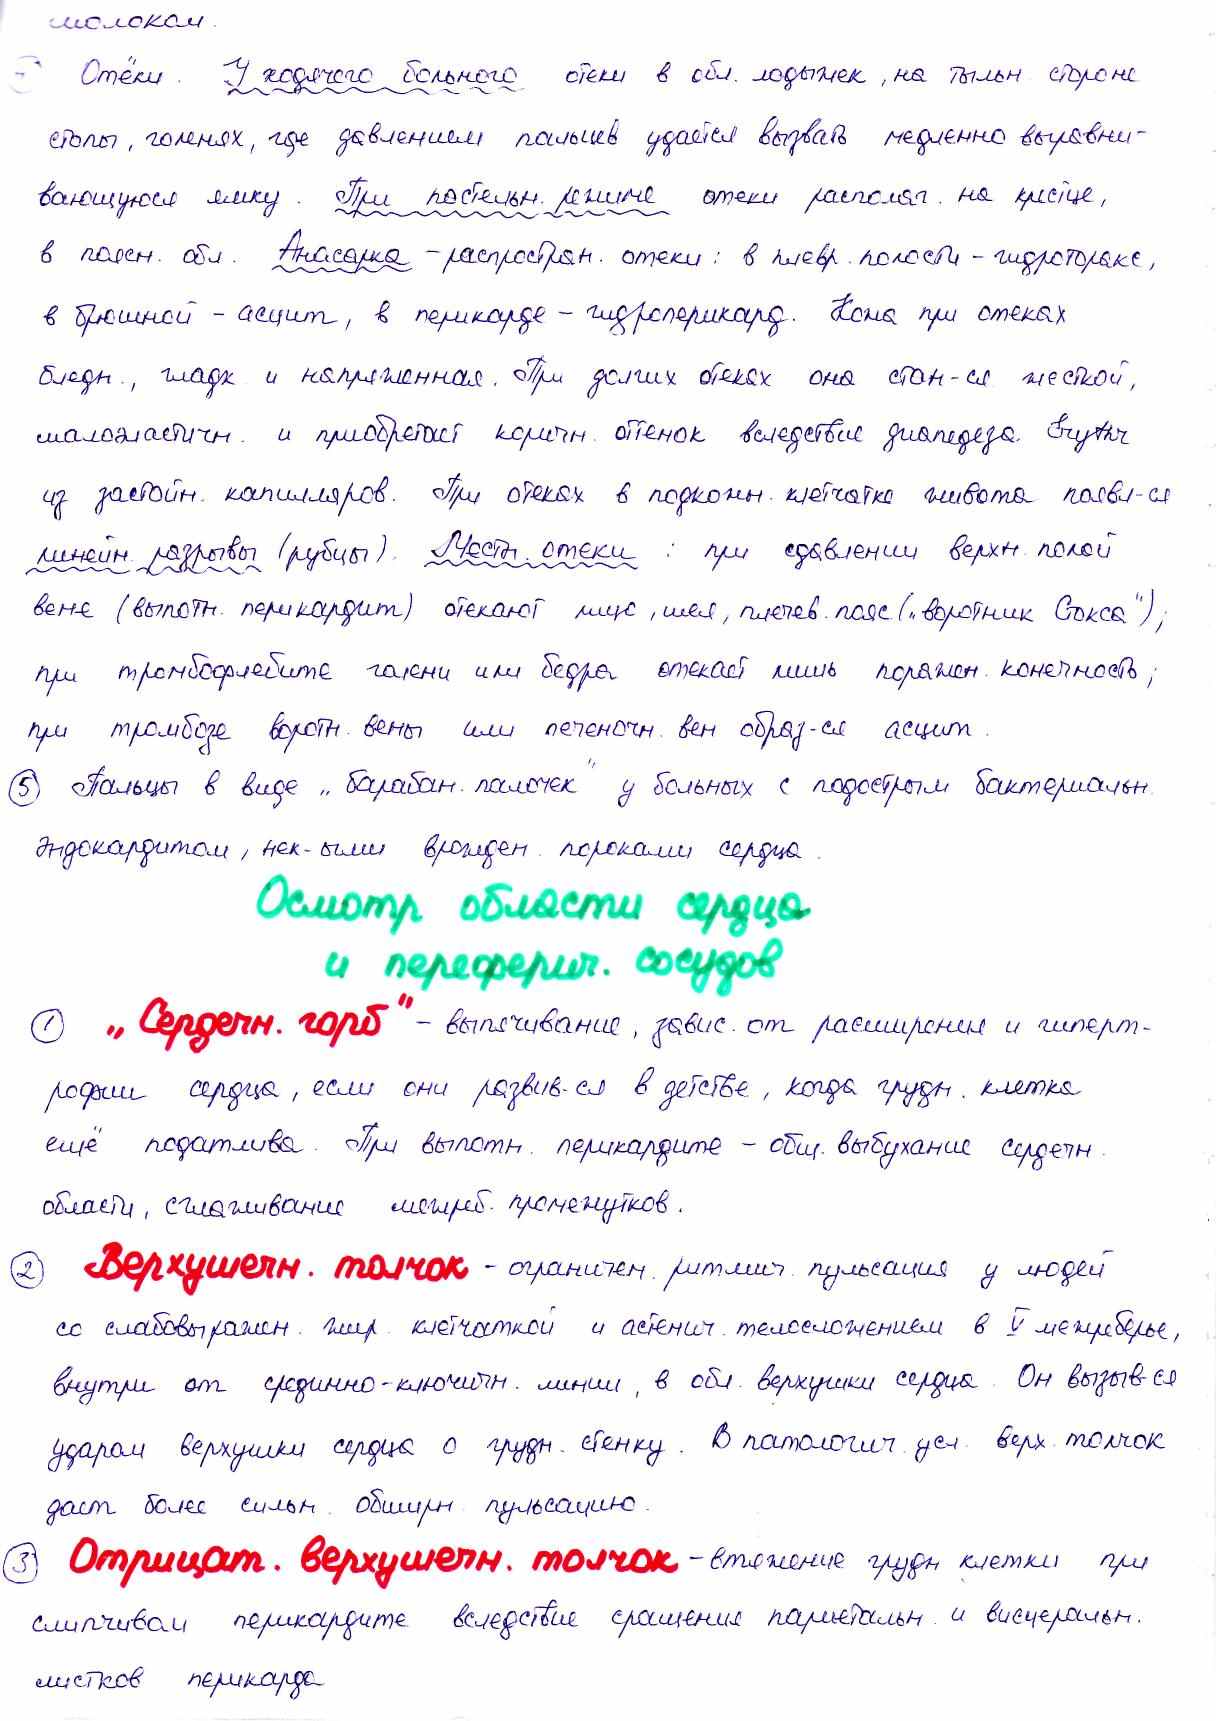 молоком.
Отёки. У ходячего больного отеки в обл. лодыжек, на тыльн. стороне
стопы, голенях, где давлением пальцев удается вызвать медленно выравни-
вающуюся ямку. При постельн. режиме отеки располаг. на крестце,
в поясн. обл. Анасарка - распростран. отеки: в плевр. полости - гидроторакс,
в брюшной - асцит, в перикарде - гидроперикард. Кожа при отеках
бледн., гладк и напряженная. При долгих отеках она стан-ся жесткой,
малоэластичн. и приобретает коричн. оттенок вследствие диапедеза Erythr
из застойн. капилляров. При отеках в подкожн. клетчатке живота появл-ся
линейн. разрывы (рубцы). Местн. отеки : при сдавлении верхн. полой
вене (выпотн. перикардит) отекают лицо, шея, плечев. пояс („воротник Стокса");
при тромбофлебите голени или бедра отекает лишь поражен. конечность;
при тромбозе воротн. вены или печеночн. вен образ-ся асцит.
5 Пальцы в виде „барабан. палочек" у больных с подострым бактериальн.
эндокардитом, нек-ыми врожден. пороками сердца.
Осмотр области сердца
и переферич. сосудов
1 „Сердечн. горб" - выпячивание, завис. от расширения и гиперт-
рофии сердца, если они развив-ся в детстве, когда грудн. клетка
ещё податлива. При выпотн. перикардите - общ. выбухание сердечн.
области, сглаживание межреб. промежутков.
2 Верхушечн. толчок - ограничен. ритмич. пульсация у людей
со слабовыражен. жир. клетчаткой и астенич. телосложением в V межреберье,
внутри от срединно-ключичн. линии, в обл. верхушки сердца. Он вызыв-ся
ударом верхушки сердца о грудн. стенку. В патологич. усл. верх. толчок
дает более сильн. обширн. пульсацию.
3 Отрицат. верхушечн. толчок - втяжение грудн клетки при
слипчивом перикардите вследствие сращения париетальн. и висцеральн.
листков перикарда